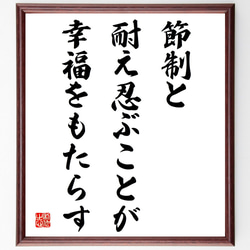 節制と
耐え忍ぶことが
幸福をもたらす